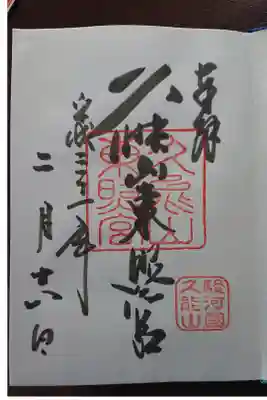 奉拝
久能山東照宮
平成三十一年
二月十六日
久能山
東照宮
駿河國
久能山